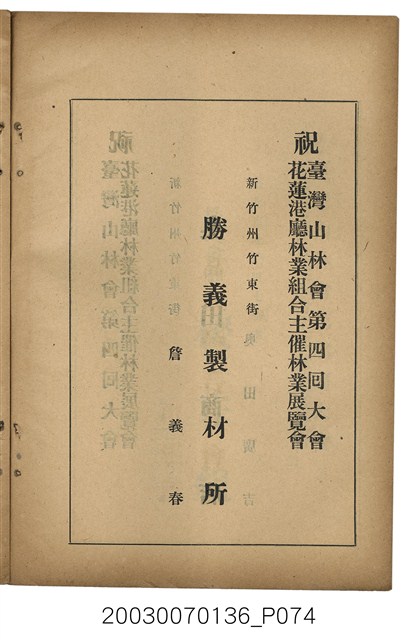 祝
臺灣山林會第四回大會
花蓮港廳林業組合主催林業展覽會
新竹州竹東街
勝義製材所
詹義春
20030070136_P074